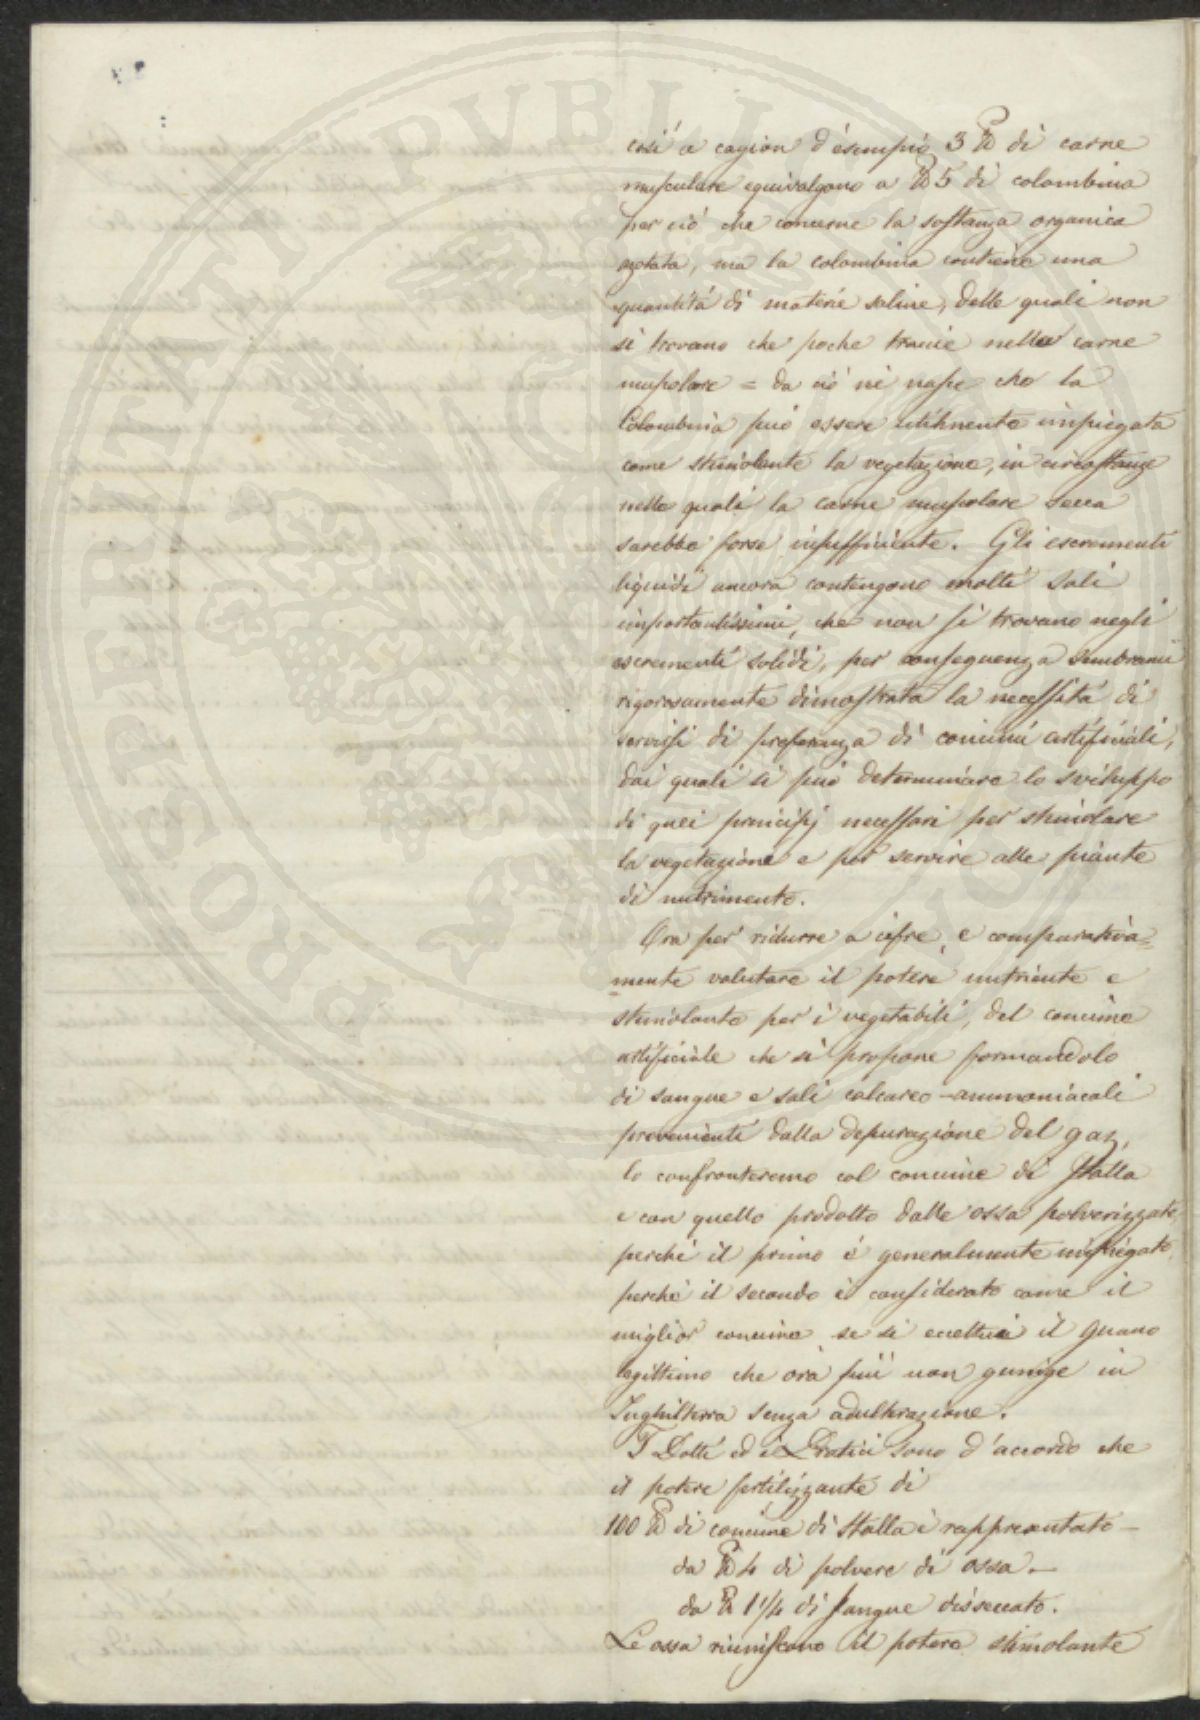 così a cagion d'esempio 3 ℔ di carne
musculare equivalgono a ℔ 5 di colombina
per ciò che concerne la sostanza organica
azotata, ma la colombina contiene una
quantità di materie saline, delle quali non
si trovano che poche traccie nella carne
muscolare = da ciò nè nasce che la
Colombina può essere utilmente impiegata
come stimolante la vegetazione, in circostanze
nelle quali la carne muscolare secca
sarebbe forse insufficiente. Gli escrementi
liquidi ancora contengono molti sali
importantissimi, che non si trovano negli
escrementi solidi, per conseguenza sembrami
rigorosamente dimostrata la necessità di
servirsi di preferenza di concimi artificiali,
dai quali si può determinare lo sviluppo
di quei principj necessari per stimolare
la vegetazione e per servire alle piante
di nutrimento.
Ora per ridurre a cifre, e comparativa=
=mente valutare il potere nutriente e
stimolante per i vegetabili, del concime
artificiale che si propone formandolo
di sangue e sali calcareo-ammoniacali
provenienti dalla depurazione del gaz,
lo confronteremo col concime di Stalla
e con quello prodotto dalle ossa polverizzate,
perchè il primo è generalmente impiegato,
perchè il secondo è considerato come il
miglior concime se si eccettui il guano
legittimo che ora più non giunge in
Inghilterra senza adulterazione.
I Dotti ed i Pratici sono d'accordo che
il potere fertilizzante di
100 ℔ di concime di Stalla è rappresentato —
da ℔ 4 di polvere di ossa. —
da ℔ 1 1/4 di Sangue disseccato.
Le ossa riuniscono il potere stimolante
PROSPERITATI PVBLI